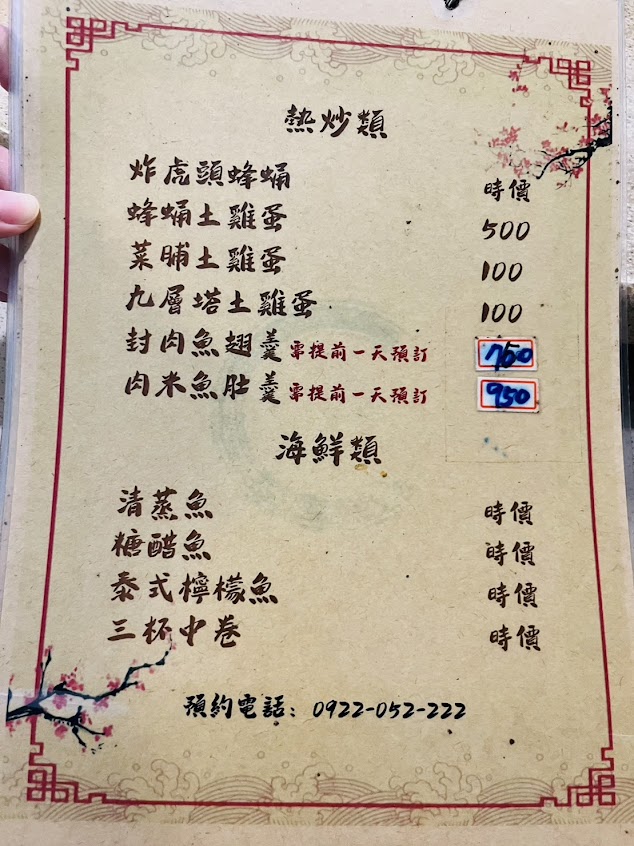 熱炒類
炸虎頭蜂蛹 時價
蜂蛹土雞蛋 500
菜脯土雞蛋 100
九層塔土雞蛋 100
封肉魚翅羹 需提前一天預訂 750
肉米魚肚羹 需提前一天預訂 950
海鮮類
清蒸魚 時價
糖醋魚 時價
泰式檸檬魚 時價
三杯中卷 時價
預約電話：0922-052-222